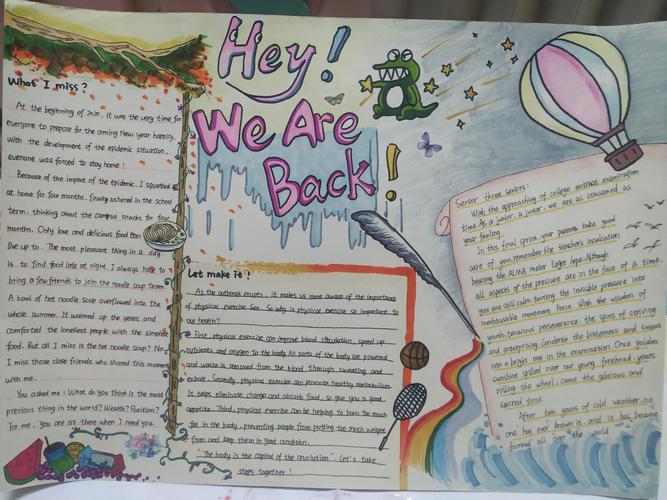 Hey!
We Are
Back!
What I miss?
At the beginning of 2020, it was the very time for
everyone to prepare for the coming New year happily,
with the development of the epidemic situation,
everyone was forced to stay home!
Because of the impact of the epidemic, I squatted
at home for four months, finally ushered in the school
term. thinking about the campus snacks for four
months. Only love and delicious food can
live up to. The most pleasant thing in a day
is to find food late at night. I always have to
bring a few friends to join the noodle soup team.
A bowl of hot noodle soup overflowed into the
whole summer. It warmed up the years and
comforted the loneliest people with the simplest
food. But all I miss is the hot noodle soup? No,
I miss those close friends who shared this moment
with me.
You asked me: What do you think is the most
precious thing in the world? Wealth? Position?
For me, You are all there when I need you.
Let make it!
As the outbreak erupts, it makes us more aware of the importance
of physical exercise. So why is physical exercise so important to
our health?
First, physical exercise can improve blood circulation, speed up
nutrients and oxygen to the body. All parts of the body are powered
and waste is removed from the blood through sweating and
exhale. Secondly, physical exercise can promote healthy metabolism.
It helps eliminate change and absorb food, so give you a good
appetite. Third, physical exercise can be helping to burn too much
fat in the body, preventing people from putting too much weight
from and keep them in good condition.
"The body is the capital of the revolution". Let's take
steps together!
Senior three seniors:
With the approaching of college entrance examination
time. As a junior, a junior we are as concerned as
your feeling.
In this final sprint your parents take good
care of you, remember the teacher's inculcation
bearing the ALMA mater Eager hope. Although
all aspects of the pressure are in the face of a time.
you are still calm, turning the invisible pressure into
inexhaustible movement Force. With the wisdom of
youth, tenacious perseverance, the spirit of striving
and enterprising, Condense the bitterness and swings
into a bright one in the examination. Once golden
sunshine spilled over our young forehead. years
rolling the wheel, came the glorious and
sacred time
After ten years of cold weather no
one has ever known it, and is has become
famous all over the world